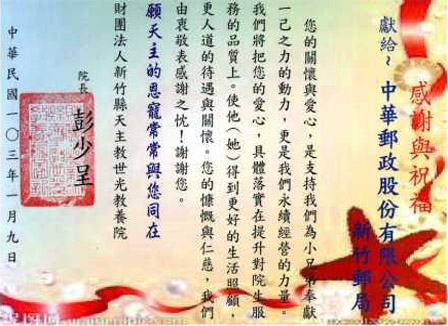 感謝與祝福
獻給~ 中華郵政股份有限公司
新竹郵局
您的關懷與愛心，是支持我們為小兄弟奉獻
一己之力的動力，更是我們永續經營的力量。
我們將把您的愛心，具體落實在提升對院生服
務的品質上。使他(她)得到更好的生活照顧，
更人道的待遇與關懷。您的慷慨與仁慈，我們
由衷敬表感謝之忱！謝謝您。
願天主的恩寵常常與您同在
財團法人新竹縣天主教世光教養院
院長 彭少呈
中華民國一０三年一月九日